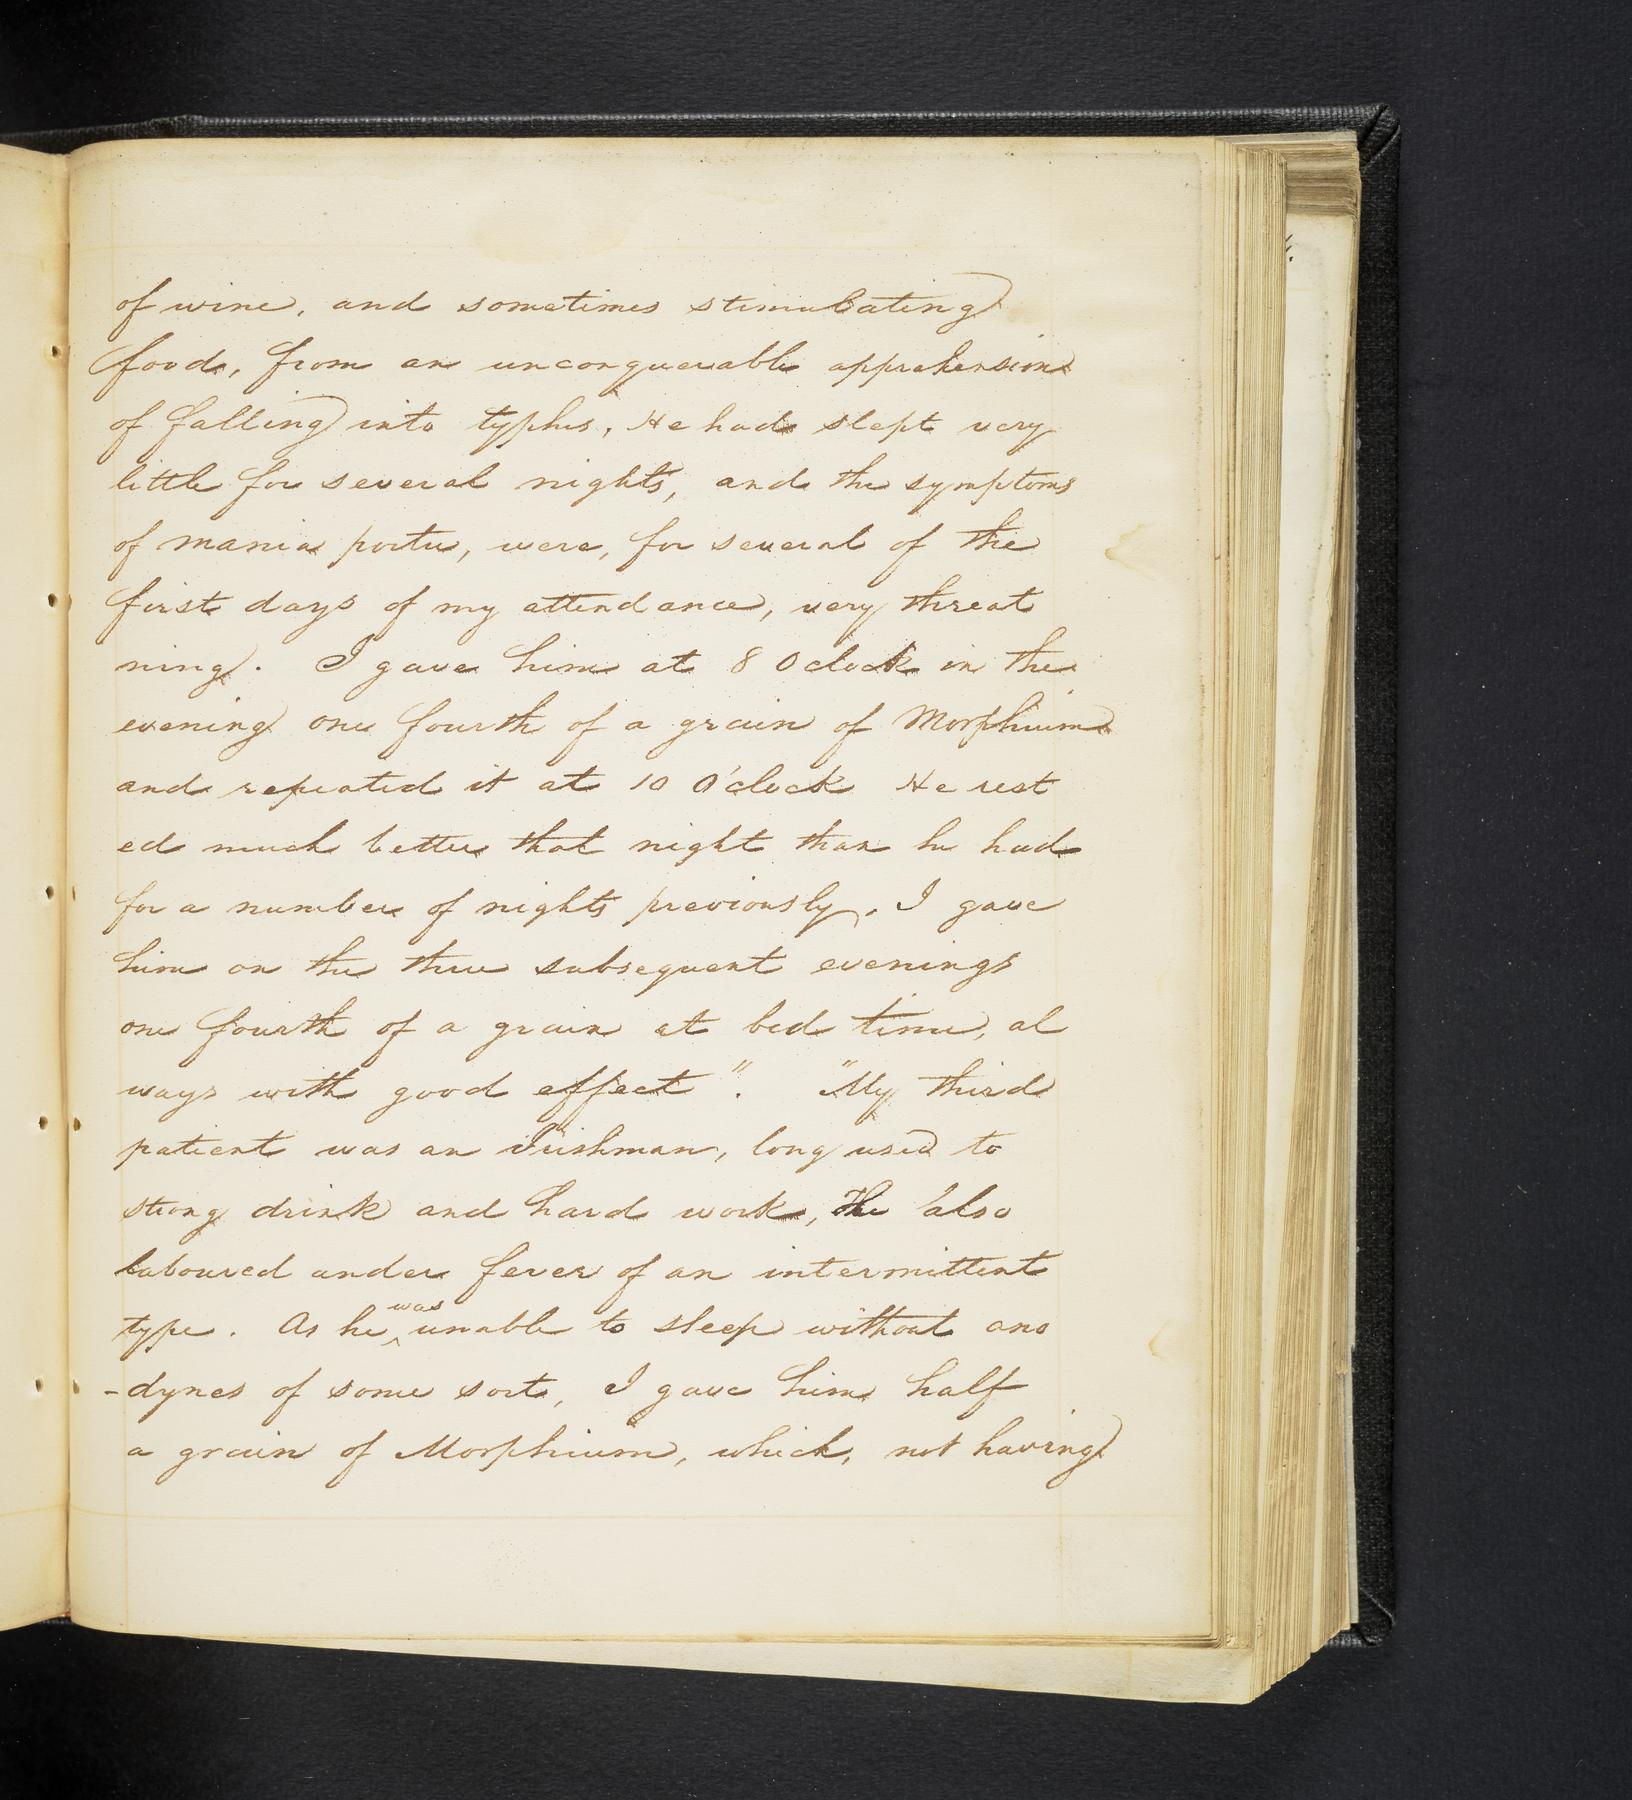 of wine, and sometimes stimulating
food, from an unconquerable apprehension
of falling into typhus, He had slept very
little for several nights, and the symptoms
of mania portu, were, for several of the
first days of my attendance, very threat
ning. I gave him at 8 Oclock in the
evening one fourth of a grain of Morphium
and repeated it at 10 O'clock He rest
ed much better that night than he had
for a number of nights previously, I gave
him on the three subsequent evenings
one fourth of a grain at bed time, al
ways with good effect". "My third
patient was an Irishman, long used to
strong drink and hard work, He also
laboured under fever of an intermittent
type. As he was unable to sleep without ano
-dynes of some sort, I gave him half
a grain of Morphium, which, not having